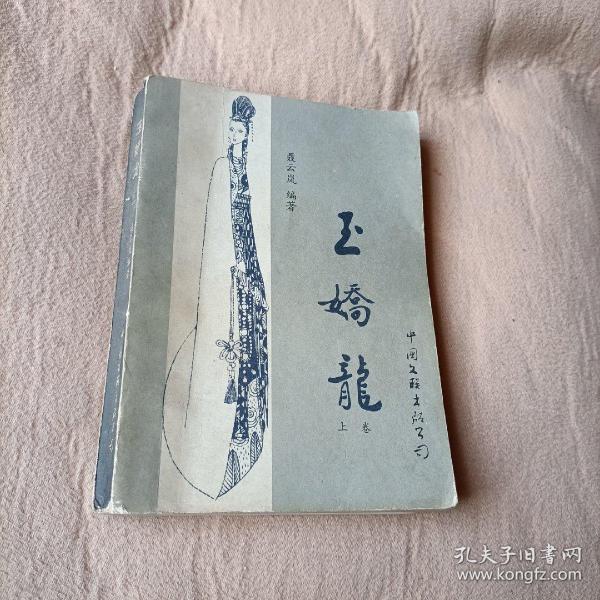 聂云岚 编著
玉嬌龍
上卷
中国文联出版公司
孔夫子旧書网
www.kongfz.com